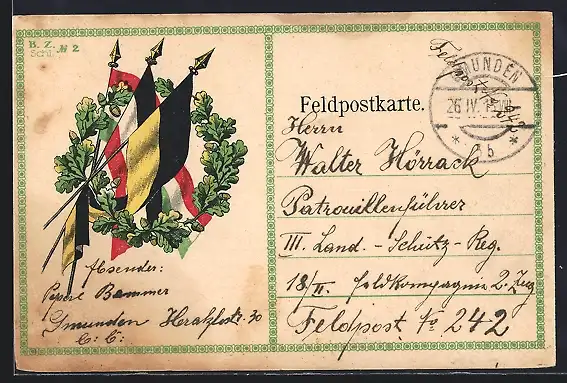 B. Z. № 2
Feldpost № 242
GMUNDEN
26 IV.
* 5b *
Feldpostkarte.
Herrn
Walter Hörrack
Patrouillenführer
III. Land. - Schütz - Reg.
18/II. Feldkompagnie 2. Zug
Feldpost № 242
Absender:
Bammer
Gmunden 30